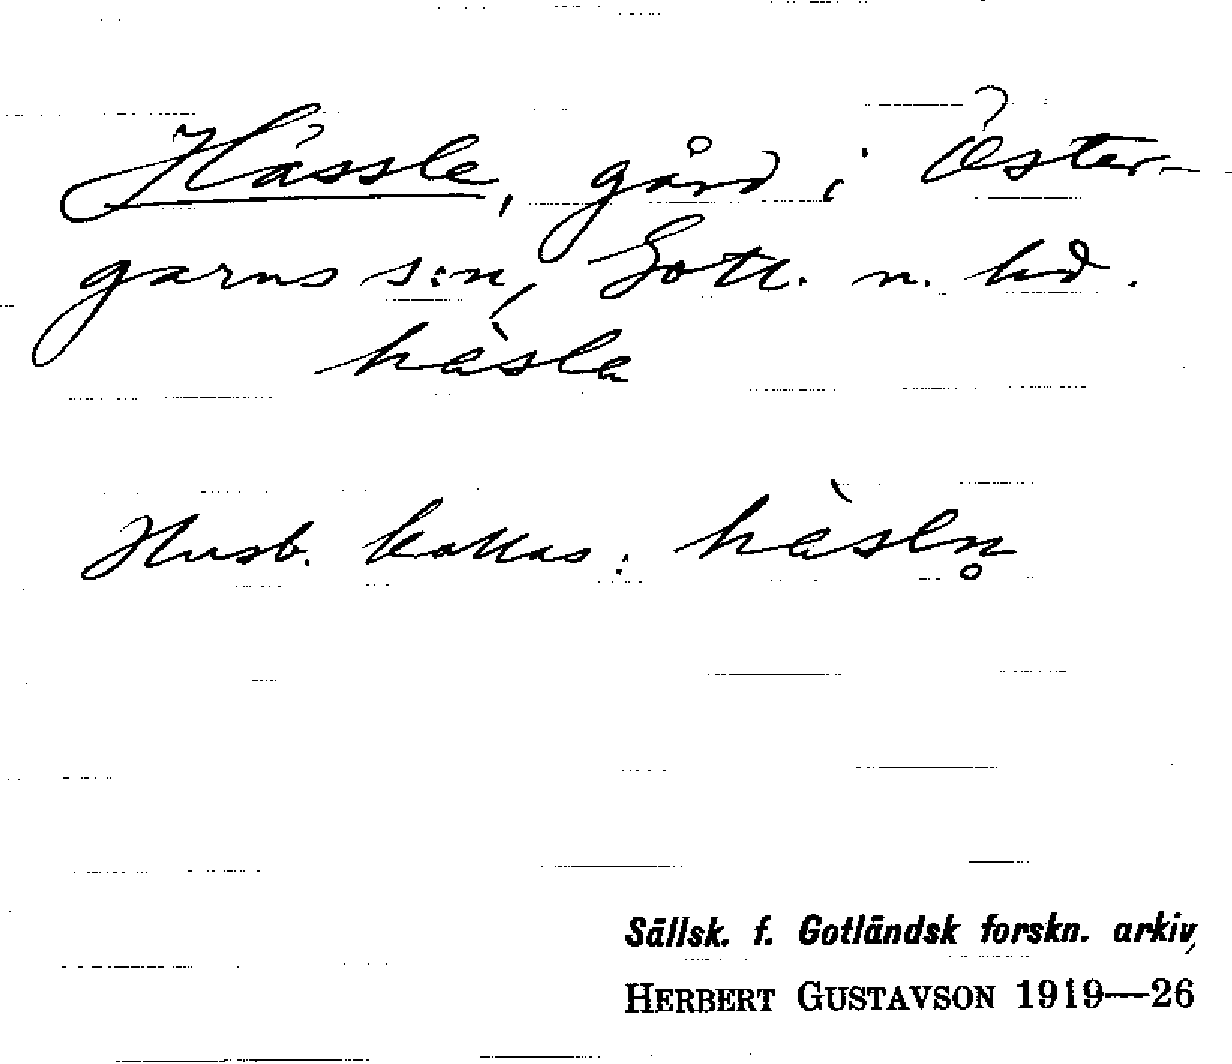 Hässle, gård i Öster-
garns s:n, Gotl. n. hd.
hàsla
Husb. kallas: hàsln̥
Sällsk. f. Gotländsk forskn. arkiv,
HERBERT GUSTAVSON 1919—26